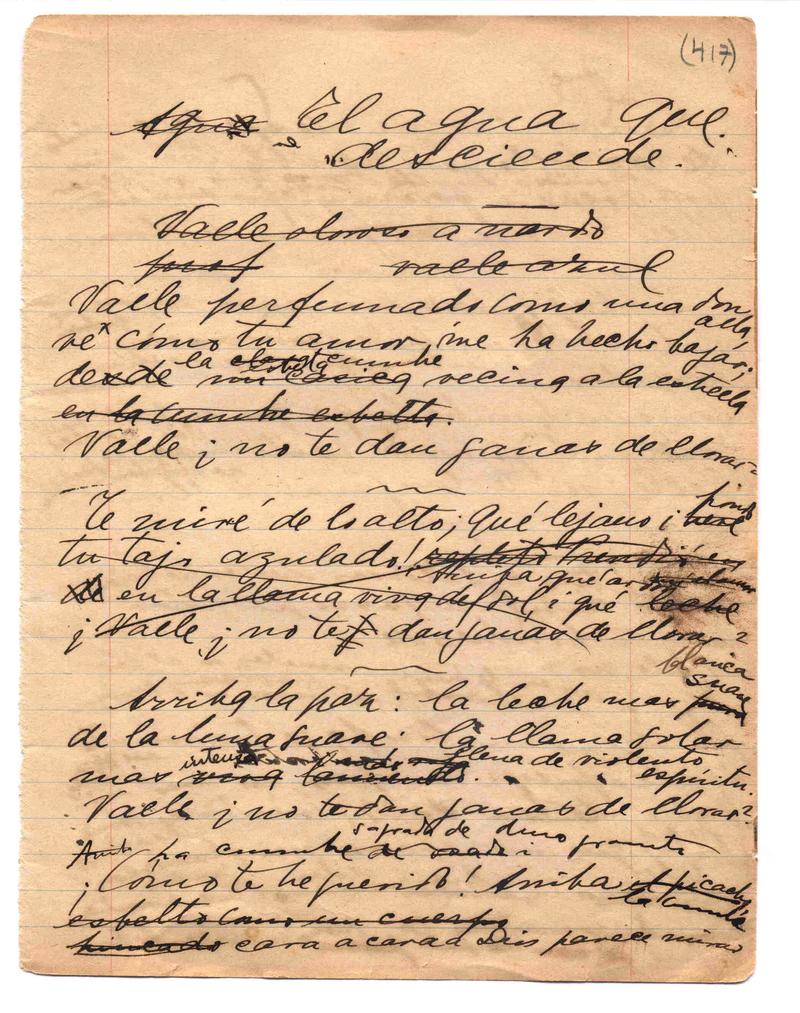 (417)
Agua El agua que
desciende.
Valle oloroso a nardo
prof valle azul
Valle perfumado como una don
cella,
ve cómo tu amor, me ha hecho bajar;
la esbelta cumbre
desde vecina a la estrella
en la cumbre esbelta.
Valle ¿no te dan ganas de llorar?
Te miré de lo alto; Qué lejano i
tu tajo azulado! repleto
Arriba que
en la llama viva del sol, i qué leche
¡Valle, ¿no te dan ganas de llorar?
blanca
suave
Arriba la paz: la leche mas pura
de la luna suave: la llama solar
intensa llena de violento
mas viva espíritu.
Valle ¿no te dan ganas de llorar?
sagrada de duro granito
Arriba la cumbre de
¡Cómo te he querido! Arriba el picacho
la cumbre
esbelto como un cuerpo
hincado cara a cara a Dios parece mirar